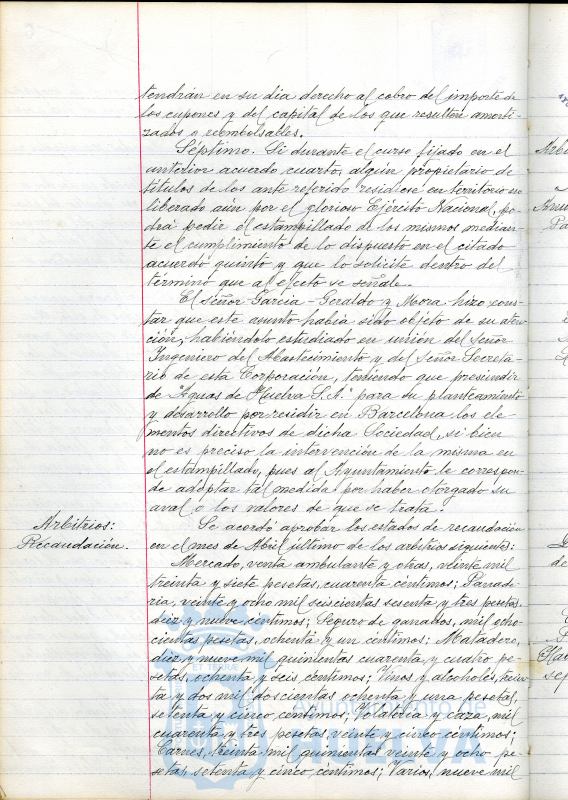 tendrán en su dia derecho al cobro del importe de
los cupones y del capital de los que resulten amorti-
zados o reembolsables.
Séptimo. Si durante el curso fijado en el
anterior acuerdo cuarto, algún propietario de
títulos de los ante referido residiese en territorio no
liberado aún por el glorioso Ejército Nacional, po-
drá pedir el estampillado de los mismos median-
te el cumplimiento de lo dispuesto en el citado
acuerdo quinto y que lo solicite dentro del
término que al efecto se señale.
El Señor Garcia-Geraldo y Mora hizo cons-
tar que este asunto habia sido objeto de su aten-
ción, habiéndolo estudiado en unión del Señor
Ingeniero del Abastecimiento y del Señor Secreta-
rio de esta Corporación, teniendo que prescindir
de "Aguas de Huelva S.A." para su planteamiento
y desarrollo por residir en Barcelona los ele-
mentos directivos de dicha Sociedad, si bien
no es preciso la intervención de la misma en
el estampillado, pues al Ayuntamiento le correspon-
de adoptar tal medida por haber otorgado su
aval a los valores de que se trata.
Arbitrios:
Recaudación.
Se acordó aprobar los estados de recaudación
en el mes de Abril último de los arbitrios siguientes:
Mercado, venta ambulante y otras, veinte mil
treinta y siete pesetas, cuarenta céntimos; Panade-
ria, veinte y ocho mil seiscientas sesenta y tres pesetas,
diez y nueve céntimos; Seguro de ganados, mil ocho-
cientas pesetas, ochenta y un céntimos; Matadero,
diez y nueve mil quinientas cuarenta y cuatro pe-
setas, ochenta y seis céntimos; Vinos y alcoholes, trein-
ta y dos mil doscientas ochenta y una pesetas,
setenta y cinco céntimos; Volateria y caza, mil
cuarenta y tres pesetas, veinte y cinco céntimos;
Carnes, treinta mil quinientas veinte y ocho pe-
setas, setenta y cinco céntimos; Varios, nueve mil
Ayuntamiento de